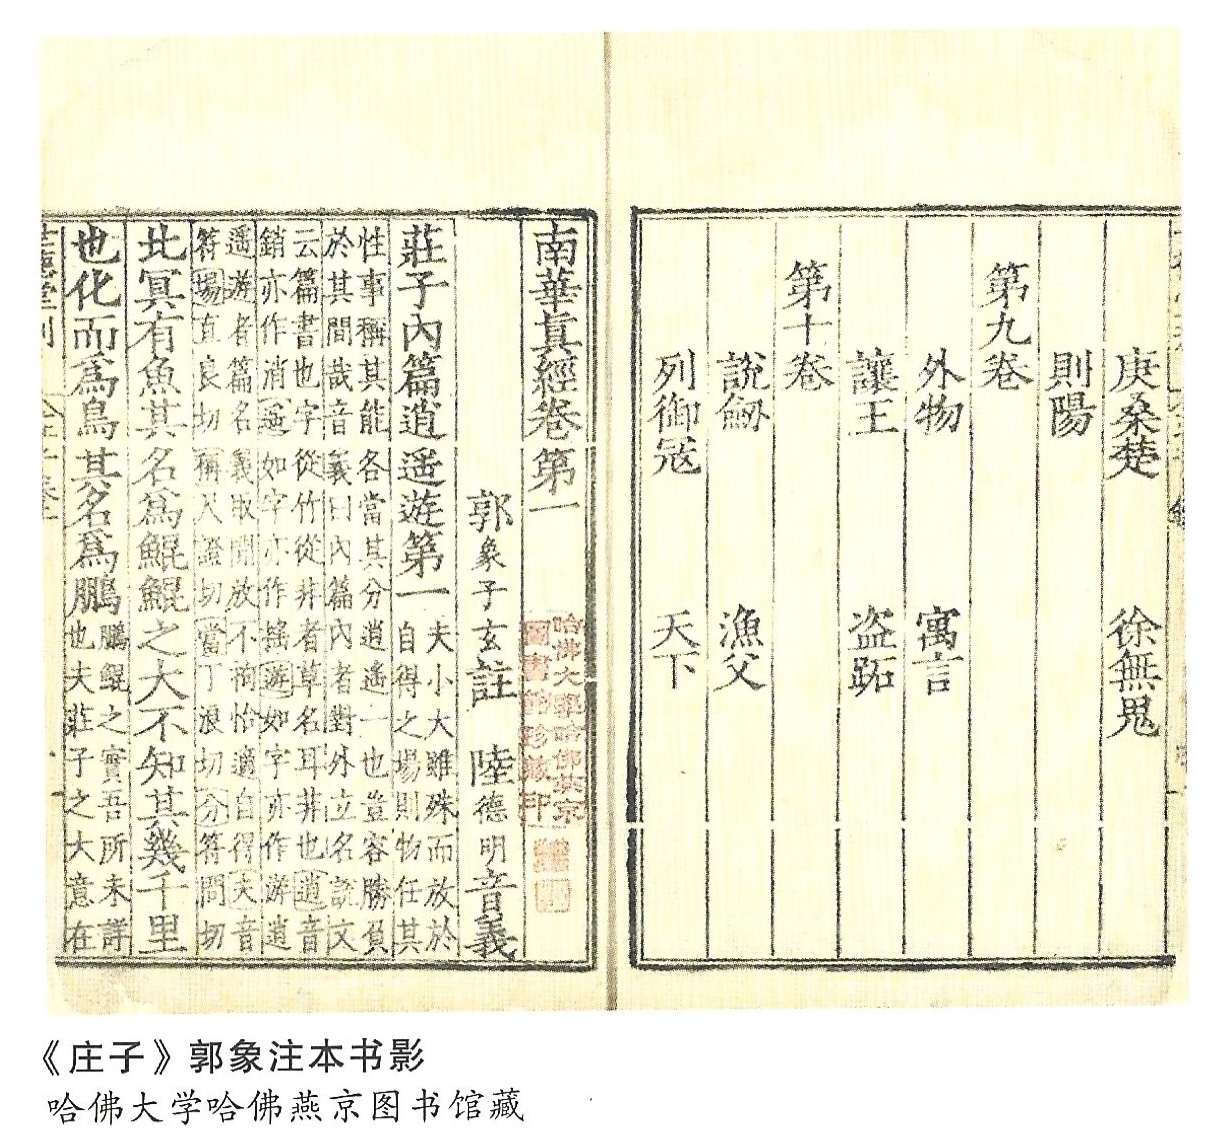 庚桑楚 徐無鬼
則陽
第九卷
外物 寓言
讓王 盜跖
第十卷
說劒 漁父
列御寇 天下
南華眞經卷第一
哈佛大學哈佛燕京
圖書館珍藏印
郭象子玄註 陸德明音義
莊子內篇逍遙遊第一
夫小大雖殊而放於
自得之場則物任其
性事稱其能各當其分逍遙一也豈容勝負
於其間哉音義曰內篇內者對外立名說文
云篇書也字從竹從艸者草名耳非也逍音
銷亦作消遙如字亦作搖遊如字亦作游逍
遙遊者篇名義取閒放不拘怡適自得夫音
符場直良切稱尺證切當丁浪切分符問切
北冥有魚其名爲鯤鯤之大不知其幾千里
也化而爲鳥其名爲鵬
鵬鯤之實吾所未詳
也夫莊子之大意在
世德堂刊
《庄子》郭象注本书影
哈佛大学哈佛燕京图书馆藏